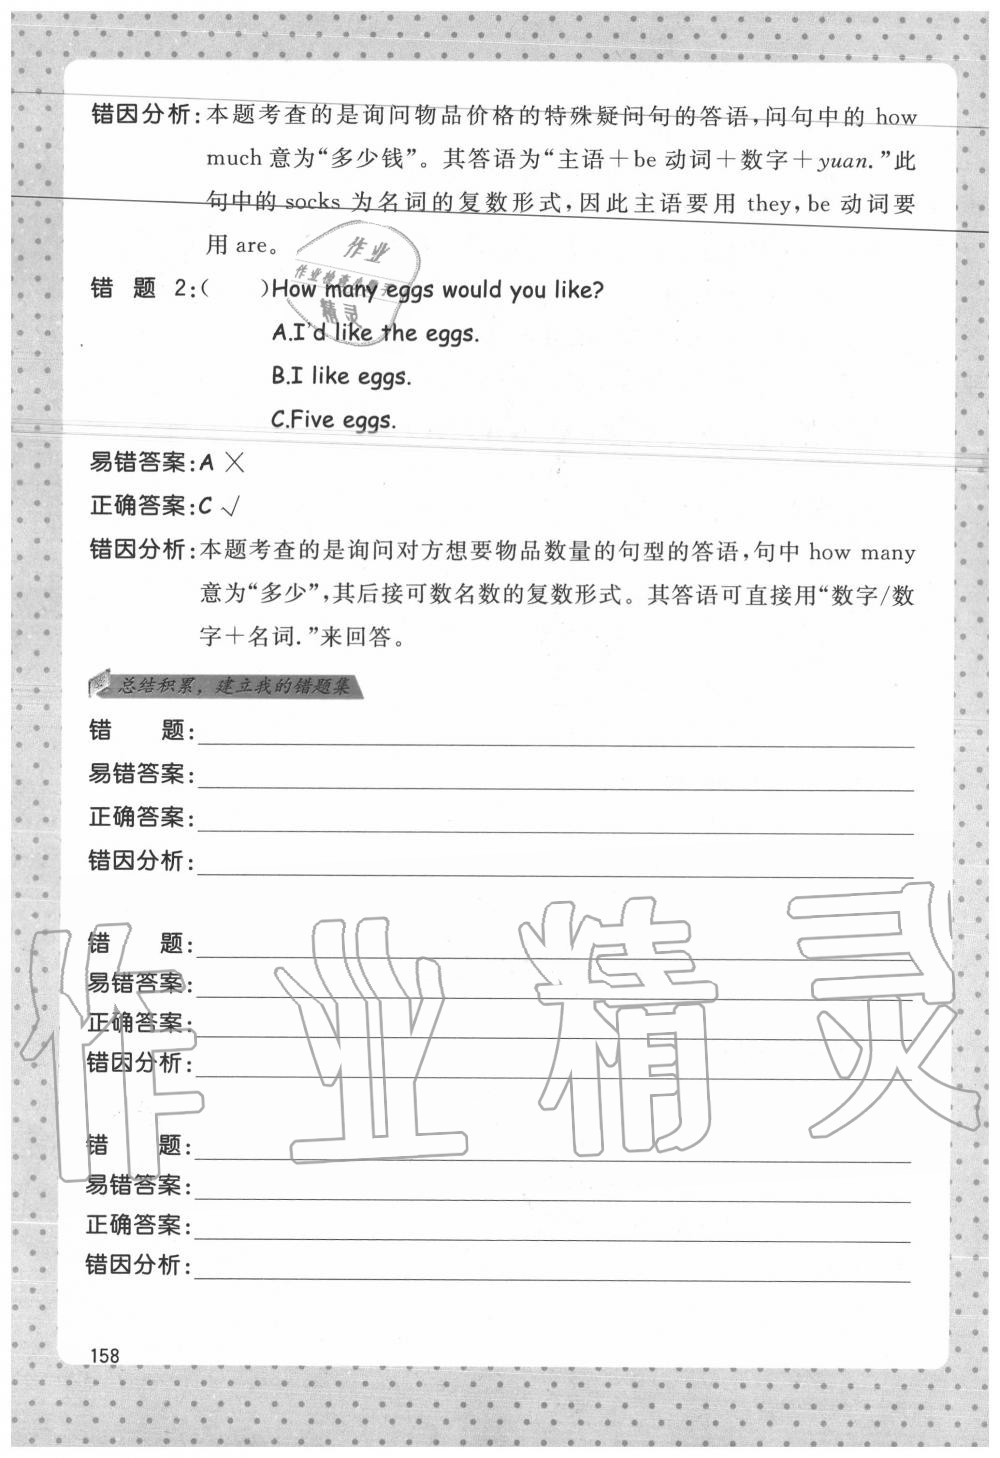 错因分析:本题考查的是询问物品价格的特殊疑问句的答语,问句中的 how
much 意为“多少钱”。其答语为“主语＋be 动词＋数字＋yuan.”此
句中的 socks 为名词的复数形式,因此主语要用 they,be 动词要
用 are。
作业
作业检查小精灵
精灵
错 题 2:( )How many eggs would you like?
A.I'd like the eggs.
B.I like eggs.
C.Five eggs.
易错答案:A ✕
正确答案:C √
错因分析:本题考查的是询问对方想要物品数量的句型的答语,句中 how many
意为“多少”,其后接可数名数的复数形式。其答语可直接用“数字/数
字＋名词.”来回答。
总结积累，建立我的错题集
错 题:
易错答案:
正确答案:
错因分析:
错 题:
易错答案:
正确答案:
错因分析:
作业精灵
错 题:
易错答案:
正确答案:
错因分析:
158